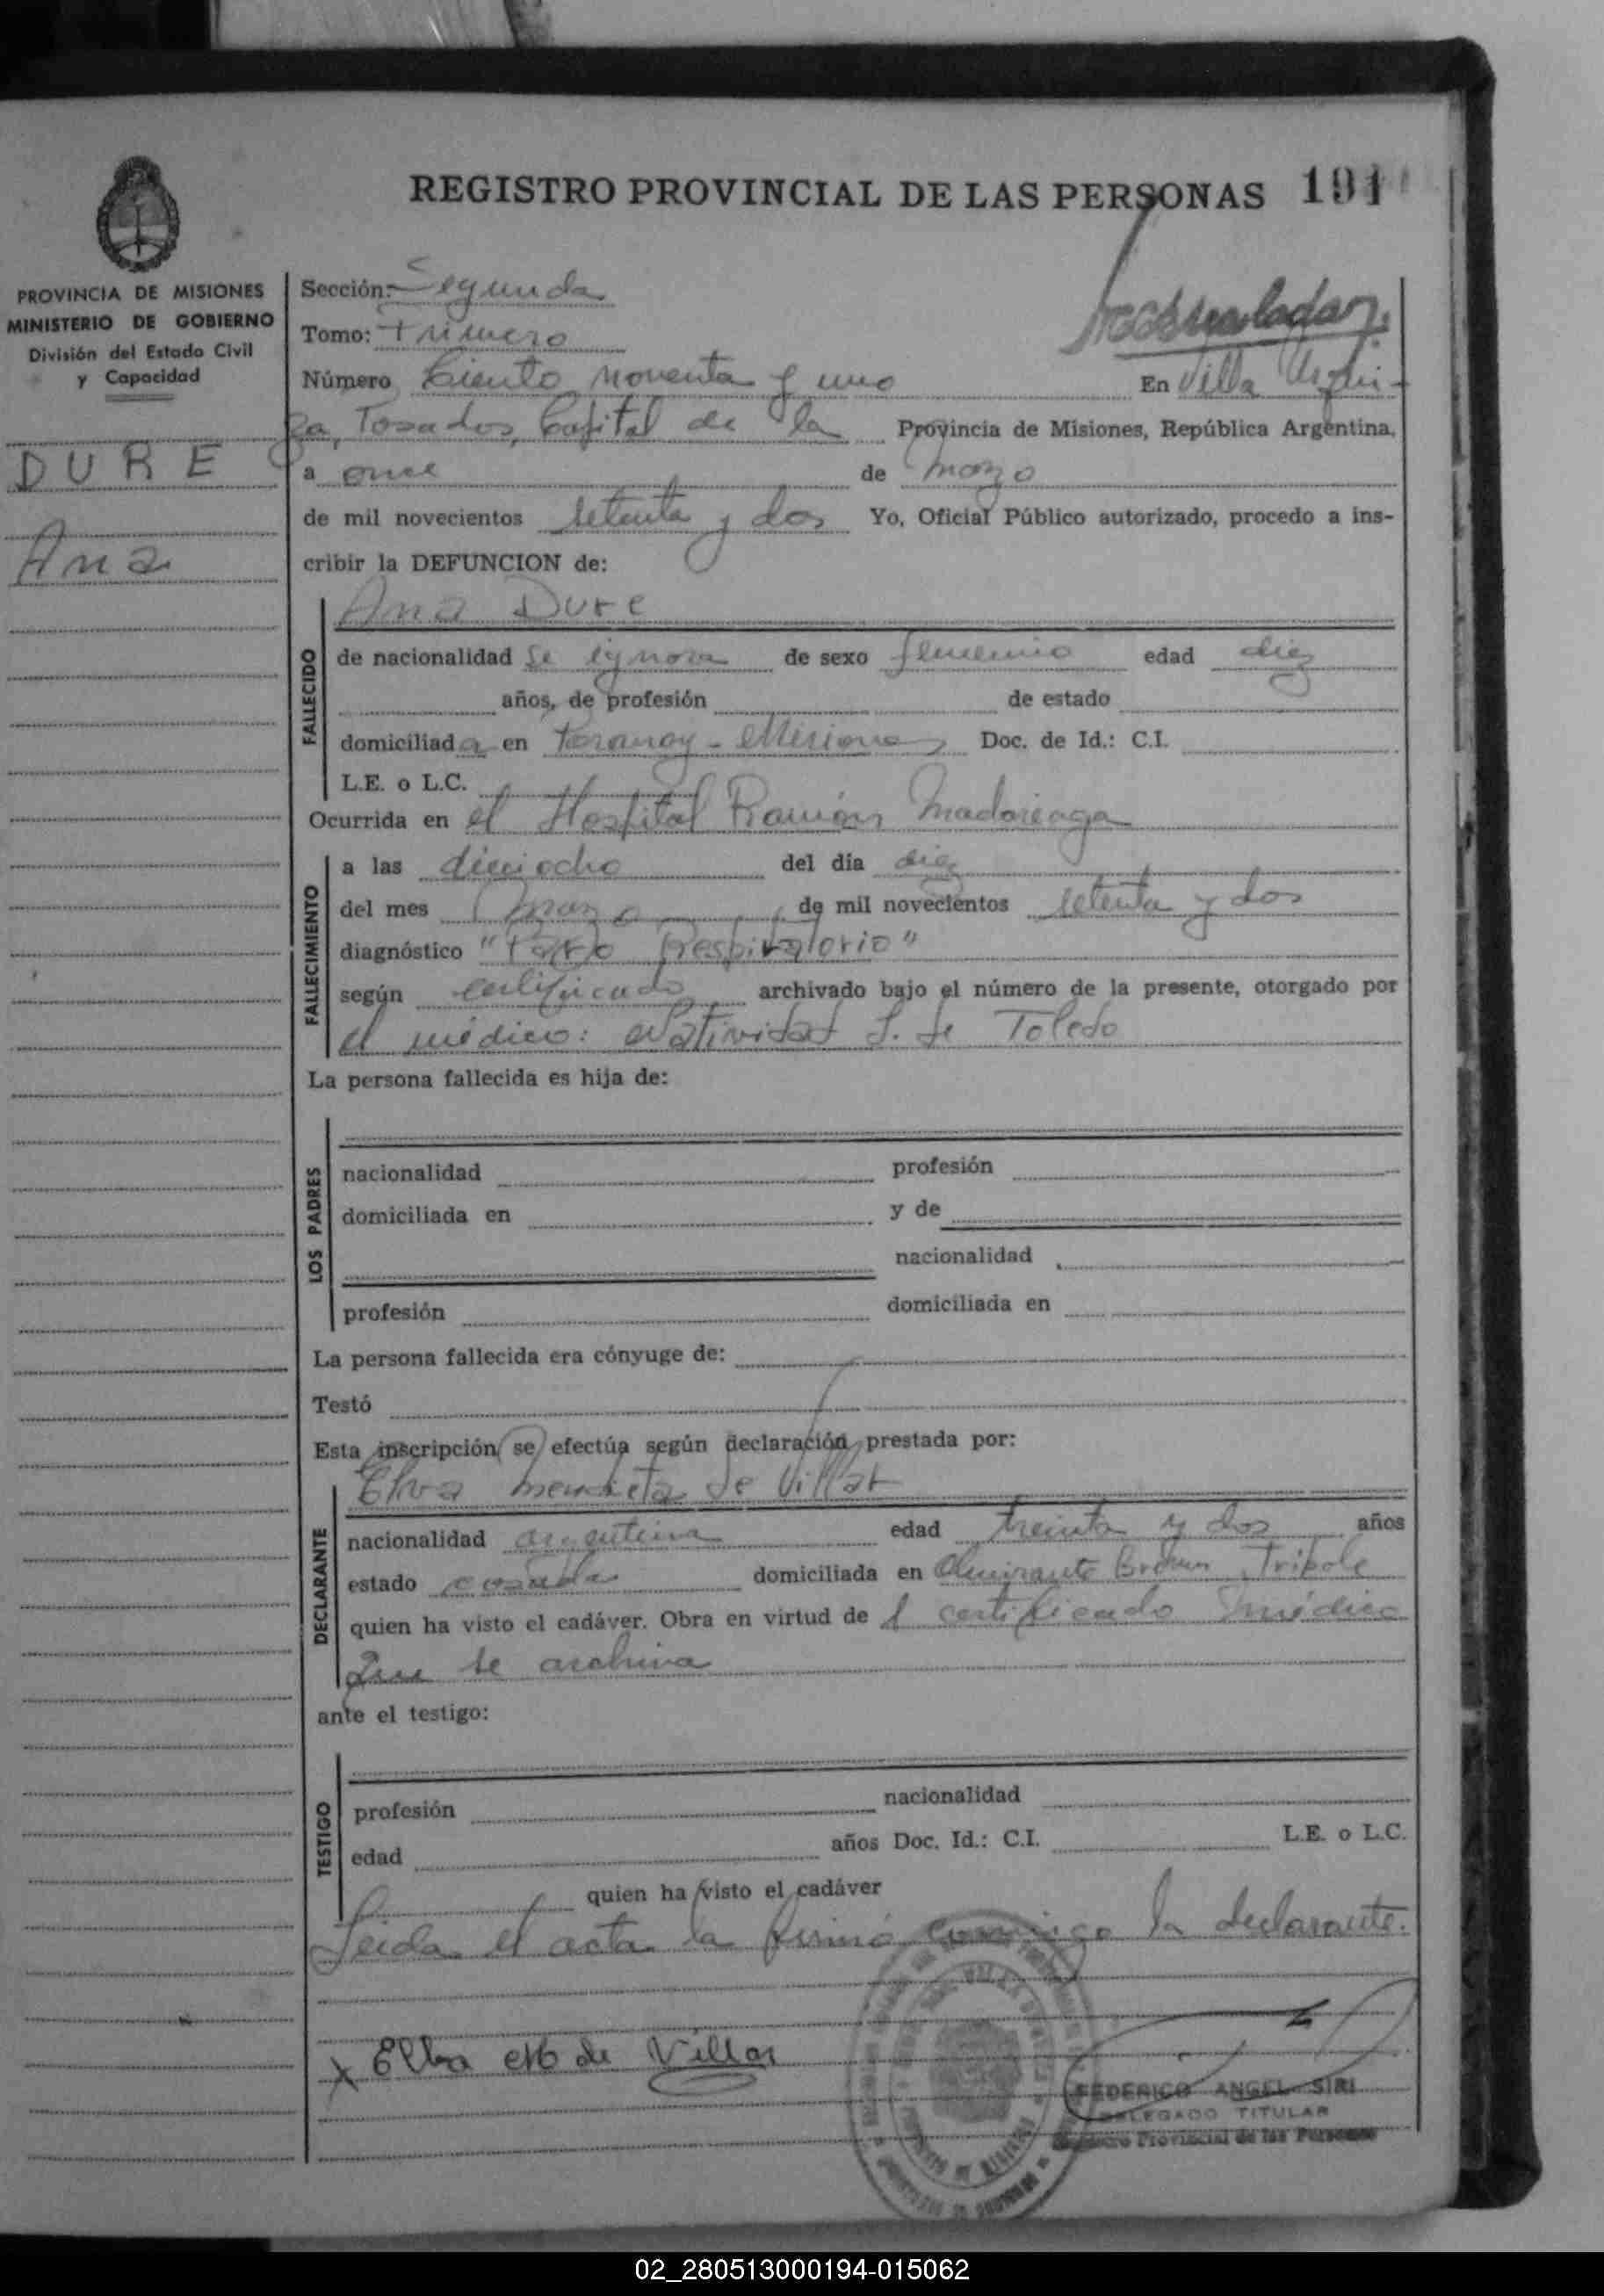 REGISTRO PROVINCIAL DE LAS PERSONAS 191
PROVINCIA DE MISIONES
MINISTERIO DE GOBIERNO
División del Estado Civil
y Capacidad
DURE
Ana
Sección: Segunda
Tomo: Primero
Número Ciento noventa y uno En Villa Urqui-
za, Posadas, Capital de la Provincia de Misiones, República Argentina,
a once de marzo
de mil novecientos setenta y dos Yo, Oficial Público autorizado, procedo a ins-
cribir la DEFUNCION de:
Ana Dure
FALLECIDO
de nacionalidad se ignora de sexo femenino edad diez
años, de profesión de estado
domiciliada en Paranay - Misiones Doc. de Id.: C.I.
L.E. o L.C.
Ocurrida en el Hospital Ramón Madariaga
FALLECIMIENTO
a las dieciocho del día diez
del mes marzo de mil novecientos setenta y dos
diagnóstico "Paro Respiratorio"
según certificado archivado bajo el número de la presente, otorgado por
el médico: Natividad S. de Toledo
La persona fallecida es hija de:
LOS PADRES
nacionalidad profesión
domiciliada en y de
nacionalidad
profesión domiciliada en
La persona fallecida era cónyuge de:
Testó
Esta inscripción se efectúa según declaración prestada por:
DECLARANTE
Elva Mendieta de Villar
nacionalidad argentina edad treinta y dos años
estado casada domiciliada en Almirante Brown Tripole
quien ha visto el cadáver. Obra en virtud de l certificado médico
que se archiva
ante el testigo:
TESTIGO
profesión nacionalidad
edad años Doc. Id.: C.I. L.E. o L.C.
quien ha visto el cadáver
Leida el acta la firmó conmigo la declarante.
x Elba M de Villar
FEDERICO ANGEL SIRI
DELEGADO TITULAR
Registro Provincial de las Personas
02_280513000194-015062